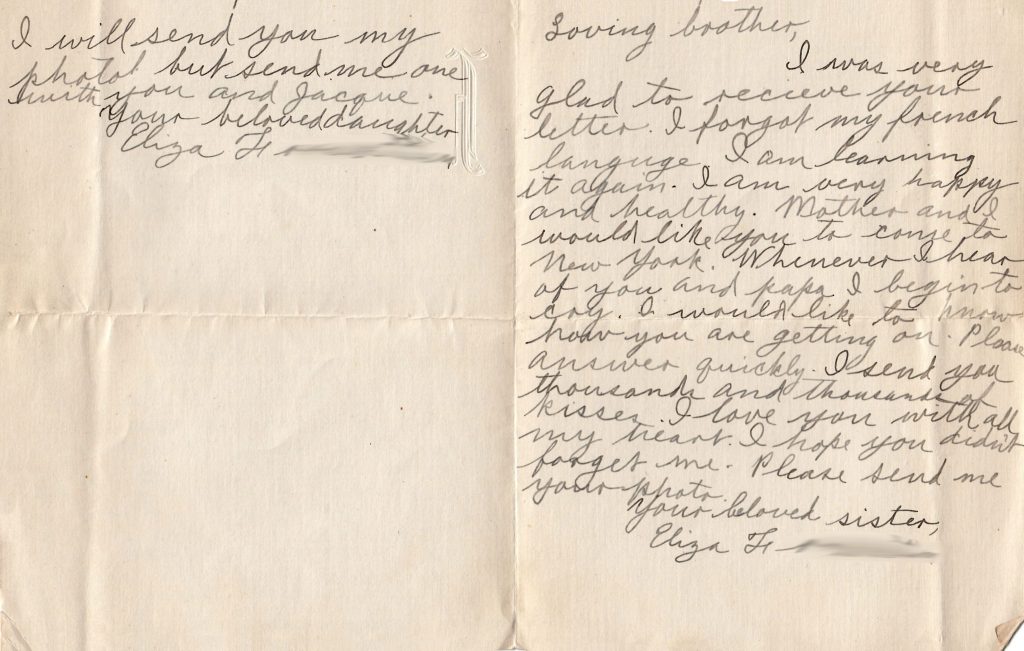 I will send you my
photo but send me one
with you and Jacque.
Your beloved daughter,
Eliza F
Loving brother,
I was very
glad to recieve your
letter. I forgot my french
languge, I am learning
it again. I am very happy
and healthy. Mother and I
would like you to come to
New York. Whenever I hear
of you and papa I begin to
cry. I would like to know
how you are getting on. Please
answer quickly. I send you
thousands and thousands of
kisses. I love you with all
my heart. I hope you didn't
forget me. Please send me
your photo.
Your beloved sister,
Eliza F